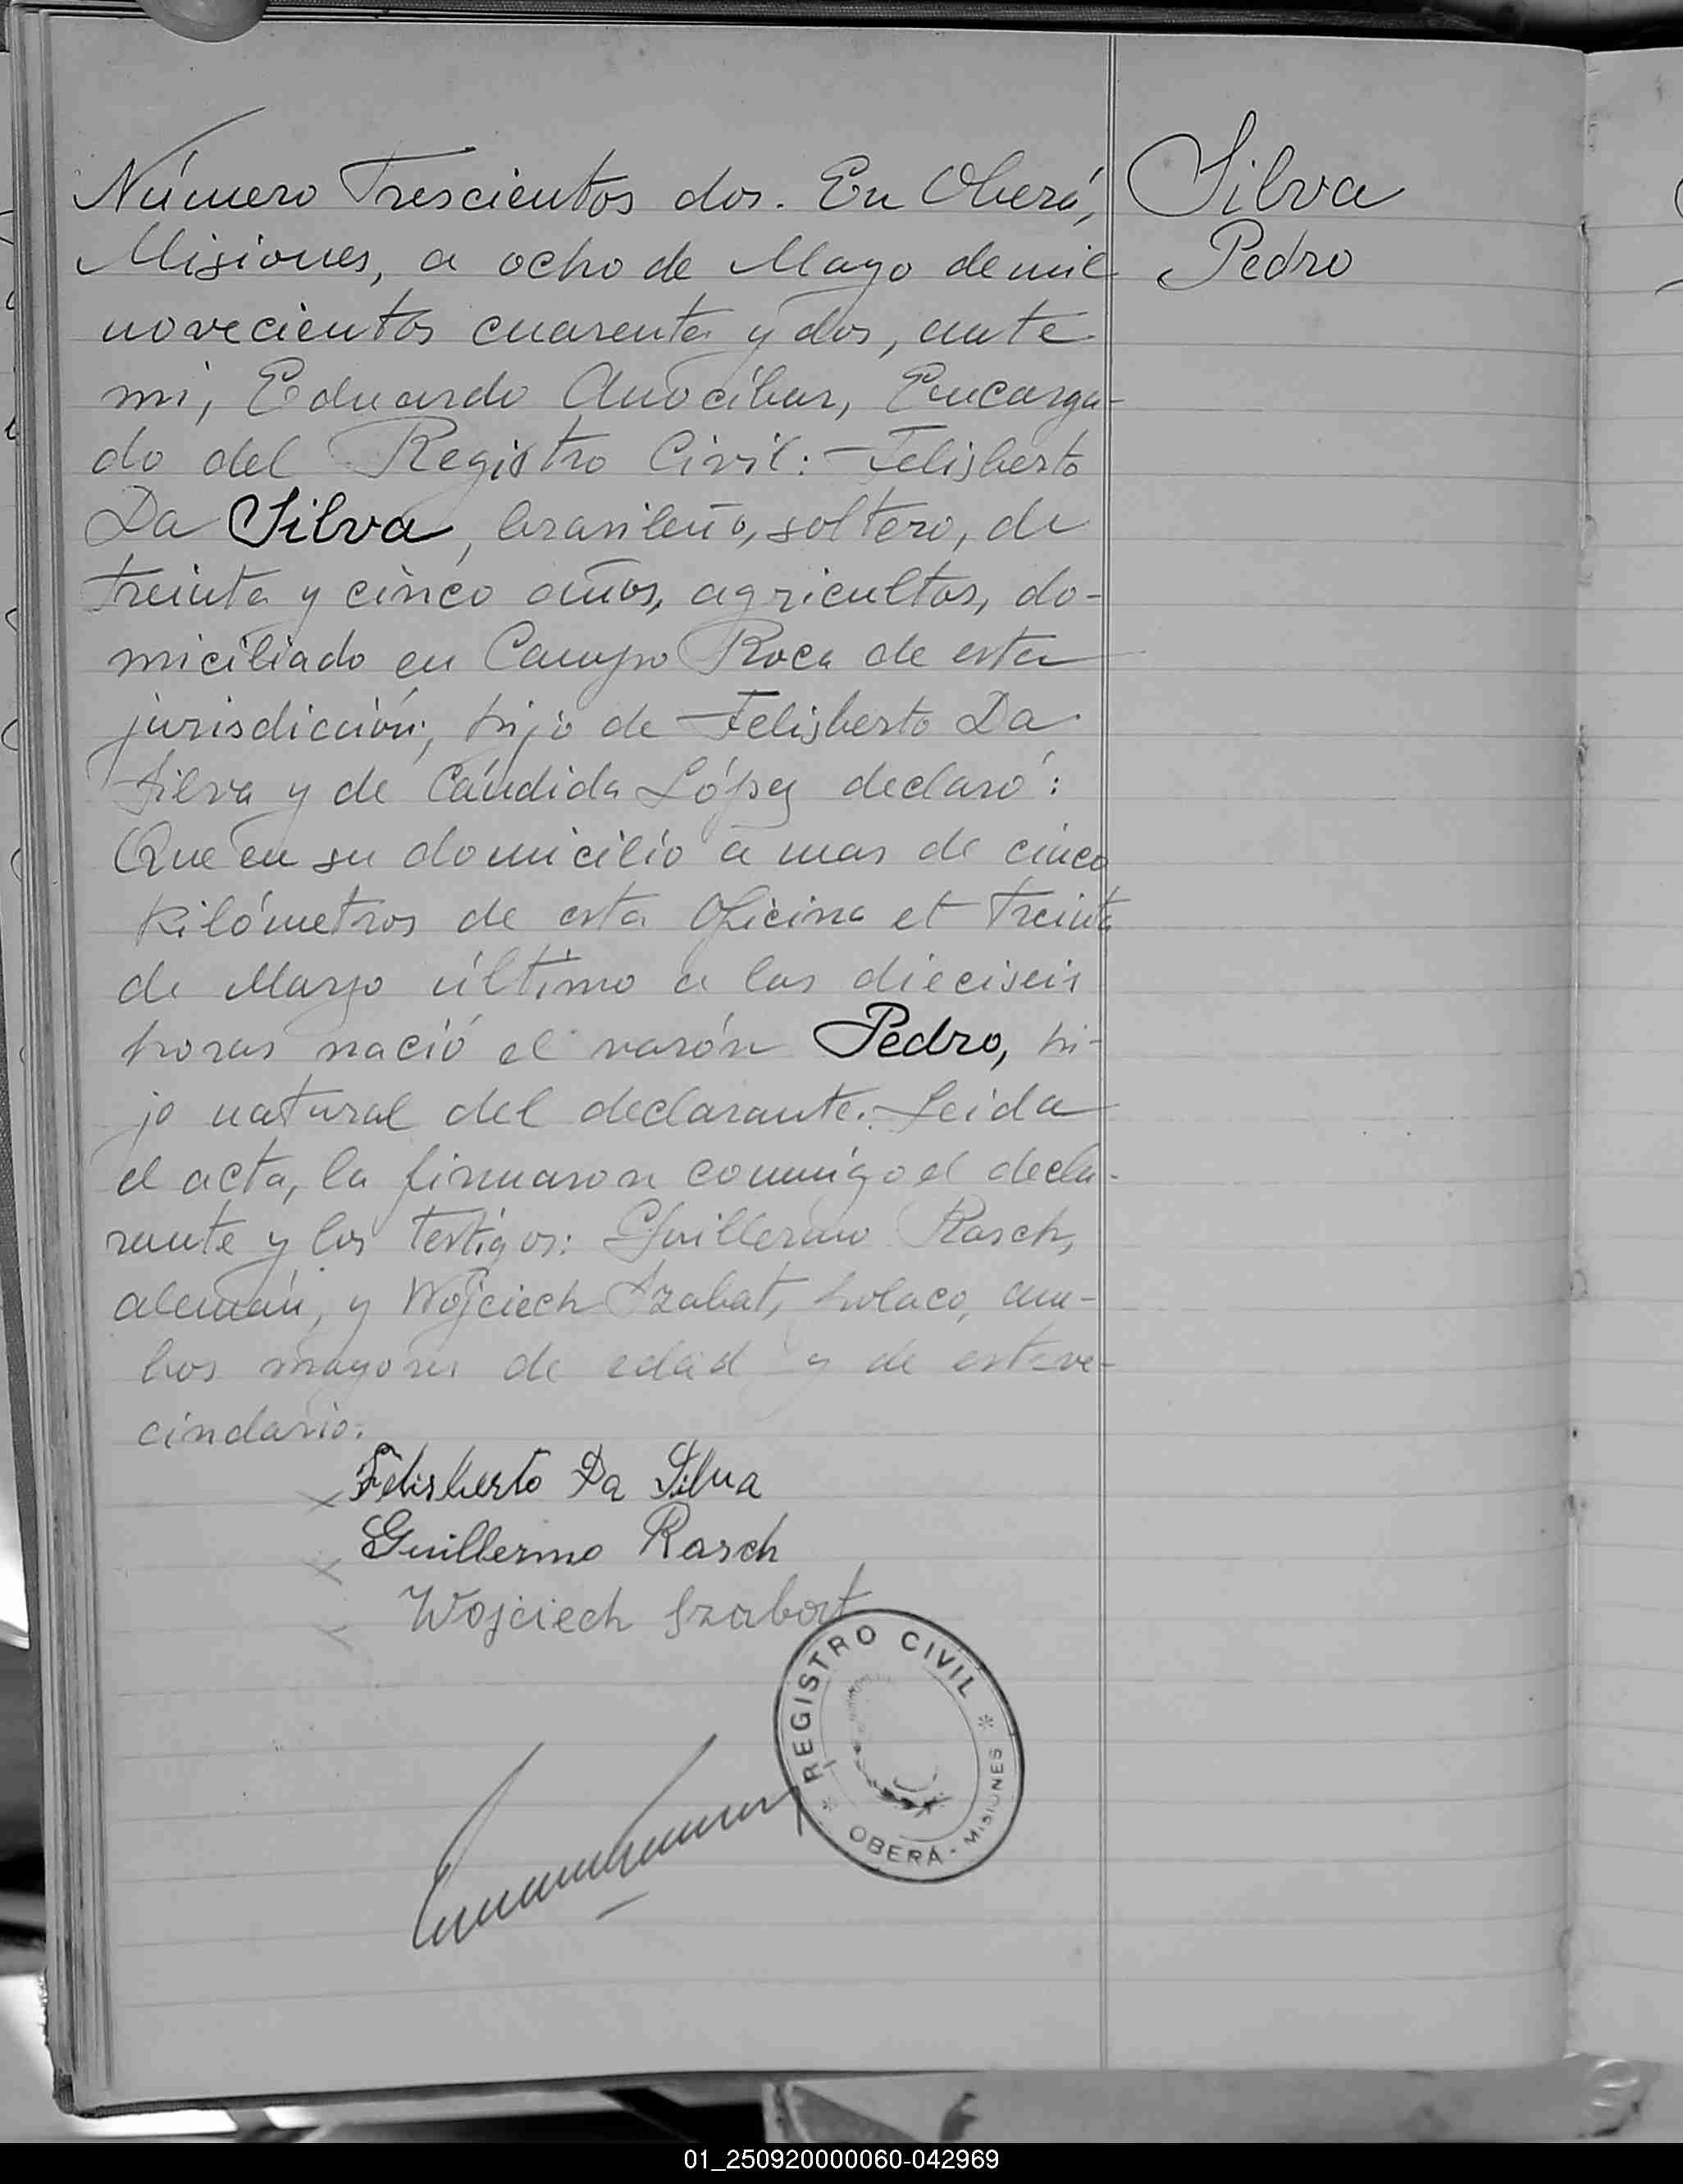 Número Trescientos dos. En Oberá,
Misiones, a ocho de Mayo de mil
novecientos cuarenta y dos, ante
mi, Eduardo Anocibar, Encarga-
do del Registro Civil: Felisberto
Da Silva, brasileño, soltero, de
treinta y cinco años, agricultor, do-
miciliado en Campo Roca de esta
jurisdicción; hijo de Felisberto Da
Silva y de Cándida López declaró:
Que en su domicilio a mas de cinco
kilómetros de esta Oficina el treinta
de Marzo último a las dieciseis
horas nació el varón Pedro, hi-
jo natural del declarante. Leida
el acta, la firmaron conmigo el decla-
rante y los testigos: Guillermo Rasch,
alemán, y Wojciech Szabat, polaco, am-
bos mayores de edad y de este ve-
cindario.
Felisberto Da Silva
Guillermo Rasch
Wojciech Szabat
REGISTRO CIVIL
OBERÁ - MISIONES
Silva
Pedro
01_250920000060-042969